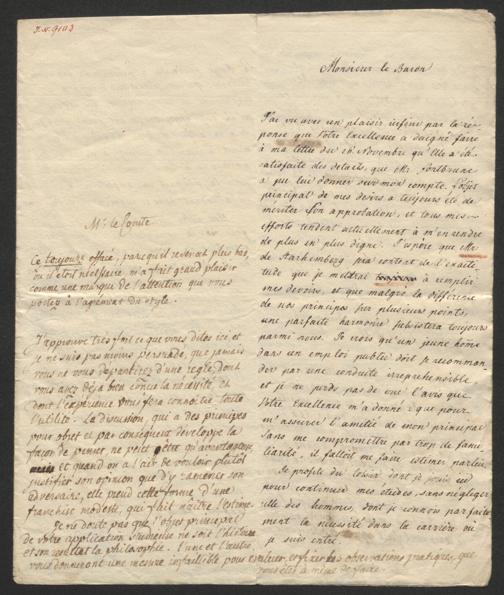 Monsieur le Baron
J'ai vu avec un plaisir infini par la ré-
ponse que Votre Excellence a daigné faire
à ma lettre du 26 Novembre qu'Elle a été
satisfaite des details, que Mr.
a pu lui donner sur mon compte. L'objet
principal de mes desirs a toujours été de
meriter Son approbation, et tous mes
efforts tendent actuellement à m'en rendre
de plus en plus digne. J'espère que Mr.
de Starhemberg sera content de l'exacti-
tude que je mettrai à remplir
mes devoirs, et que malgré la difference
de nos principes sur plusieurs points,
une parfaite harmonie subsistera toujours
parmi nous. Je crois qu'un jeune homme
dans un emploi public doit se recomman-
der par une conduite irreprehensible
et je ne perds pas de vue l'avis que
Votre Excellence m'a donné: que pour
m'assurer l'amitié de mon principal
sans me compromettre par trop de fami-
liarité, il falloit me faire estimer par lui.
Je profite du loisir dont je jouis
pour continuer mes études, sans négliger
celle des hommes, dont je connois parfaite-
ment la necessité dans la carriere où
je suis entré.
Mr. le Comte
Ce toujours office, parce qu'il revenait plus bas,
où il étoit nécessaire, m'a fait grand plaisir
comme une marque de l'attention que vous
portez à l'agrément du style.
J'approuve très fort ce que vous dites ici, et
je ne suis pas moins persuadé, que jamais
vous ne vous departirez d'une regle, dont
vous avez déja bien conçu la necessité, et
dont l'experience vous fera connoitre toute
l'utilité. La discussion, qui a des principes
pour objet et par conséquent developpe la
façon de penser, ne peut être qu'avantageuse
et quand on a l'air de vouloir plutôt
justifier son opinion que d'y ramener son
adversaire, elle prend cette forme d'une
franchise modeste, qui fait naitre l'estime.
Je ne doute pas que l'objet principal
de votre application studieuse ne soit l'histoire
et son resultat la philosophie. L'une et l'autre
vous donneront une mesure infaillible pour évaluer et fixer les observations pratiques, que
vous êtes à même de faire.